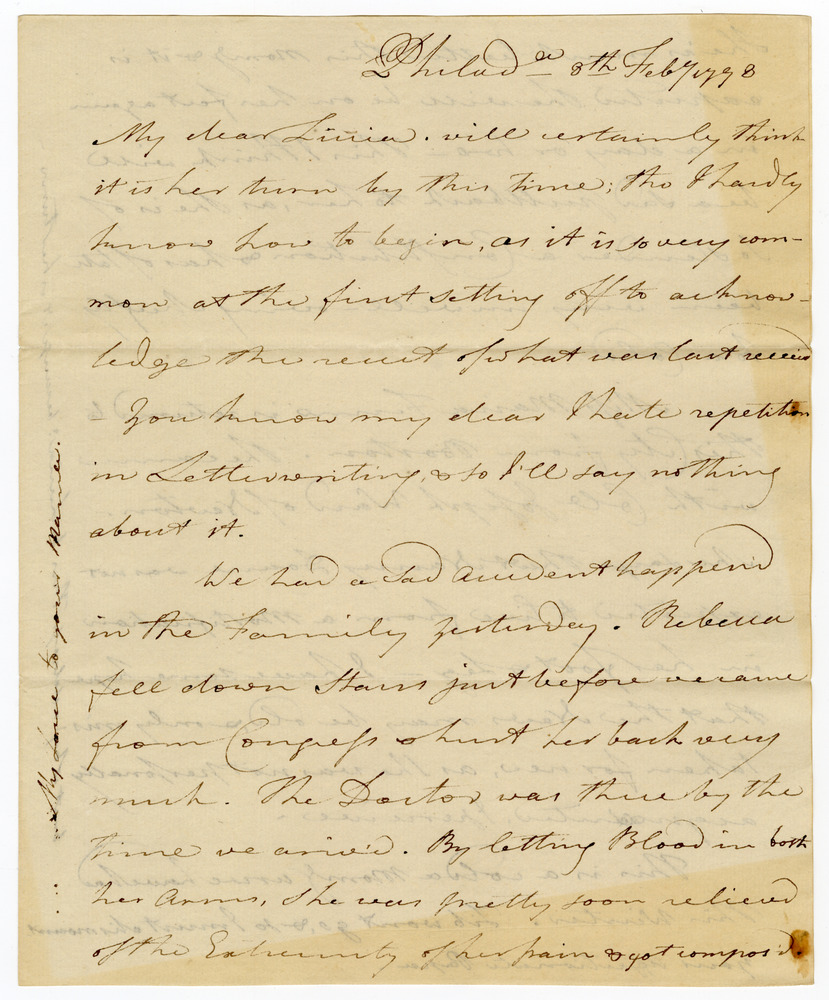 Philada 8th Feby 1798
My dear Lucia. will certainly think
it is her turn by this time; tho I hardly
know how to begin, as it is so very com-
mon at the first setting off to acknow-
ledge the receit of what was last receivd
You know my dear I hate repetition
in Letterwriting, & so I'll say nothing
about it.
We had a sad accident happen'd
in the Family yesterday. Rebecca
fell down Stairs just before we came
from Congress & hurt her back very
much. The Doctor was there by the
time we arriv'd. By letting Blood in both
her arms, she was pretty soon relieved
of the Extremity of her pain & got compos'd.
My Love to your Mama.